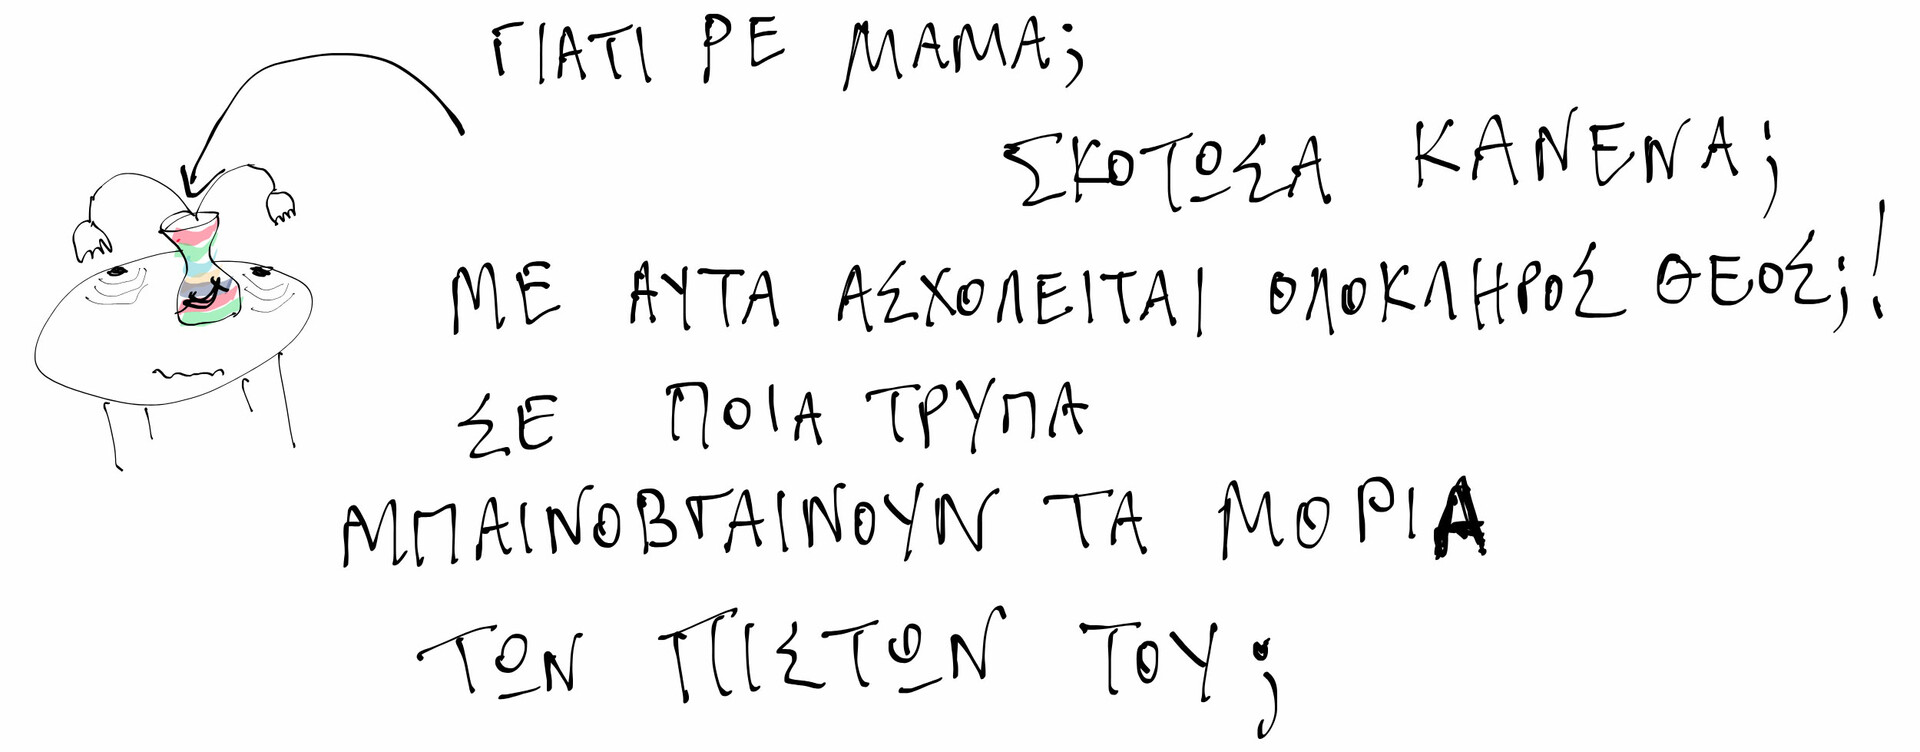 ΓΙΑΤΙ ΡΕ ΜΑΜΑ;
ΣΚΟΤΩΣΑ ΚΑΝΕΝΑ;
ΜΕ ΑΥΤΑ ΑΣΧΟΛΕΙΤΑΙ ΟΛΟΚΛΗΡΟΣ ΘΕΟΣ;!
ΣΕ ΠΟΙΑ ΤΡΥΠΑ
ΜΠΑΙΝΟΒΓΑΙΝΟΥΝ ΤΑ ΜΟΡΙΑ
ΤΩΝ ΠΙΣΤΩΝ ΤΟΥ;